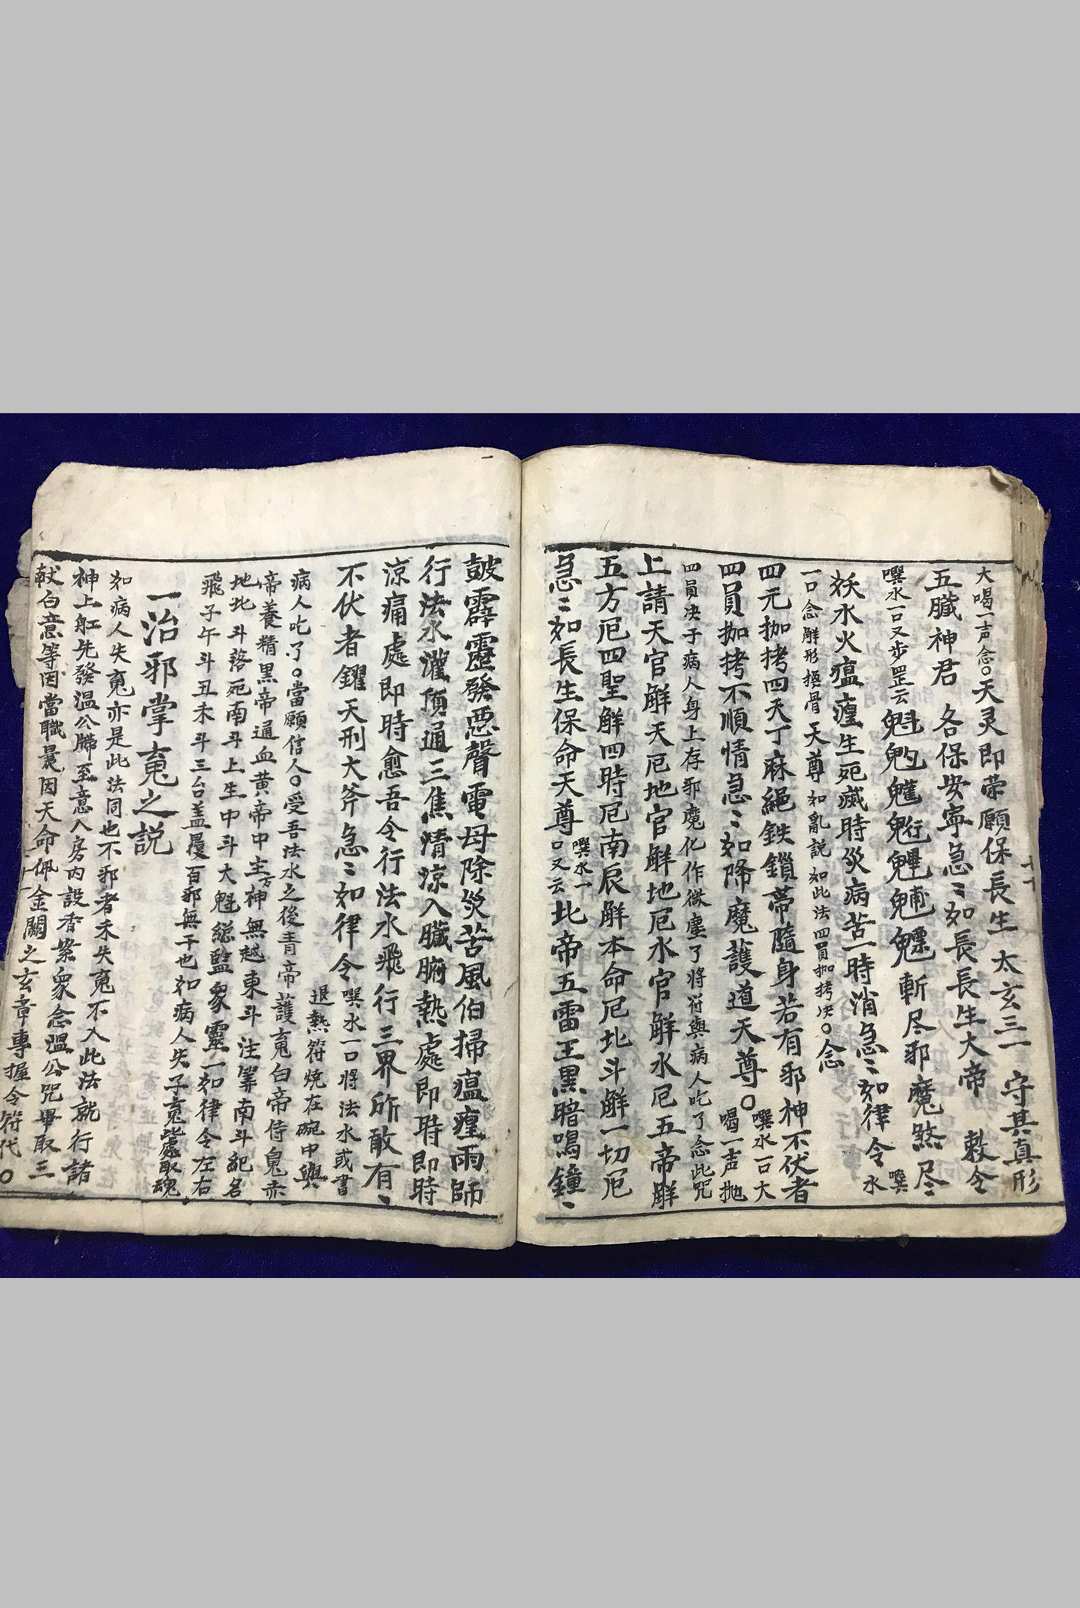 大喝一声念○天灵即荣願保長生 太玄三一 守其真形
五臟神君 各保安寧急〻如長長生大帝 敕令
噀水一口又步罡云 魁 斬尽邪魔煞尽〻
妖水火瘟瘟生死滅時災病苦一時消急〻如律令 噀水
一口念解形摇骨天尊 如亂説如此法四員枷拷决○念
四元枷拷四天丁麻繩鉄鎖帶隨身若有邪神不伏者
四員枷拷不順情急〻如降魔護道天尊○ 噀水一口大喝一声抛
四員决子病人身上存邪魔化作微塵了將符與病人吃了念此咒
上請天官解天厄地官解地厄水官解水厄五帝解
五方厄四聖解四時厄南辰解本命厄北斗解一切厄
急〻如長生保命天尊 噀水一口又云 北帝五雷王黒暗鳴鐘〻
鼓霹靂發惡聲電母除災苦風伯掃瘟瘟雨師
行法水灌頂通三焦清涼入臟腑熱處即時即時
涼痛處即時愈吾令行法水飛行三界所敢有〻
不伏者鑼天刑大斧急〻如律令 噀水一口將法水或書
退熱符燒在碗中與
病人吃了○當願信人○受吾法水之後青帝護魂白帝侍鬼赤
帝養精黒帝通血黄帝中主万神無越東斗注筭南斗記名
地北斗落死南斗上生中斗大魁總監眾靈一如律令左右
飛子午斗丑未斗三台盖覆百邪無干也如病人失子魂處取魂
一治邪掌魂之説
如病人失魂亦是此法同也不邪者未失魂不入此法就行諸
神上舡先發温公牒至意入房内設香案衆念温公咒畢取三
献白意等因當職晨因天命佩金闕之玄章專握令符代○